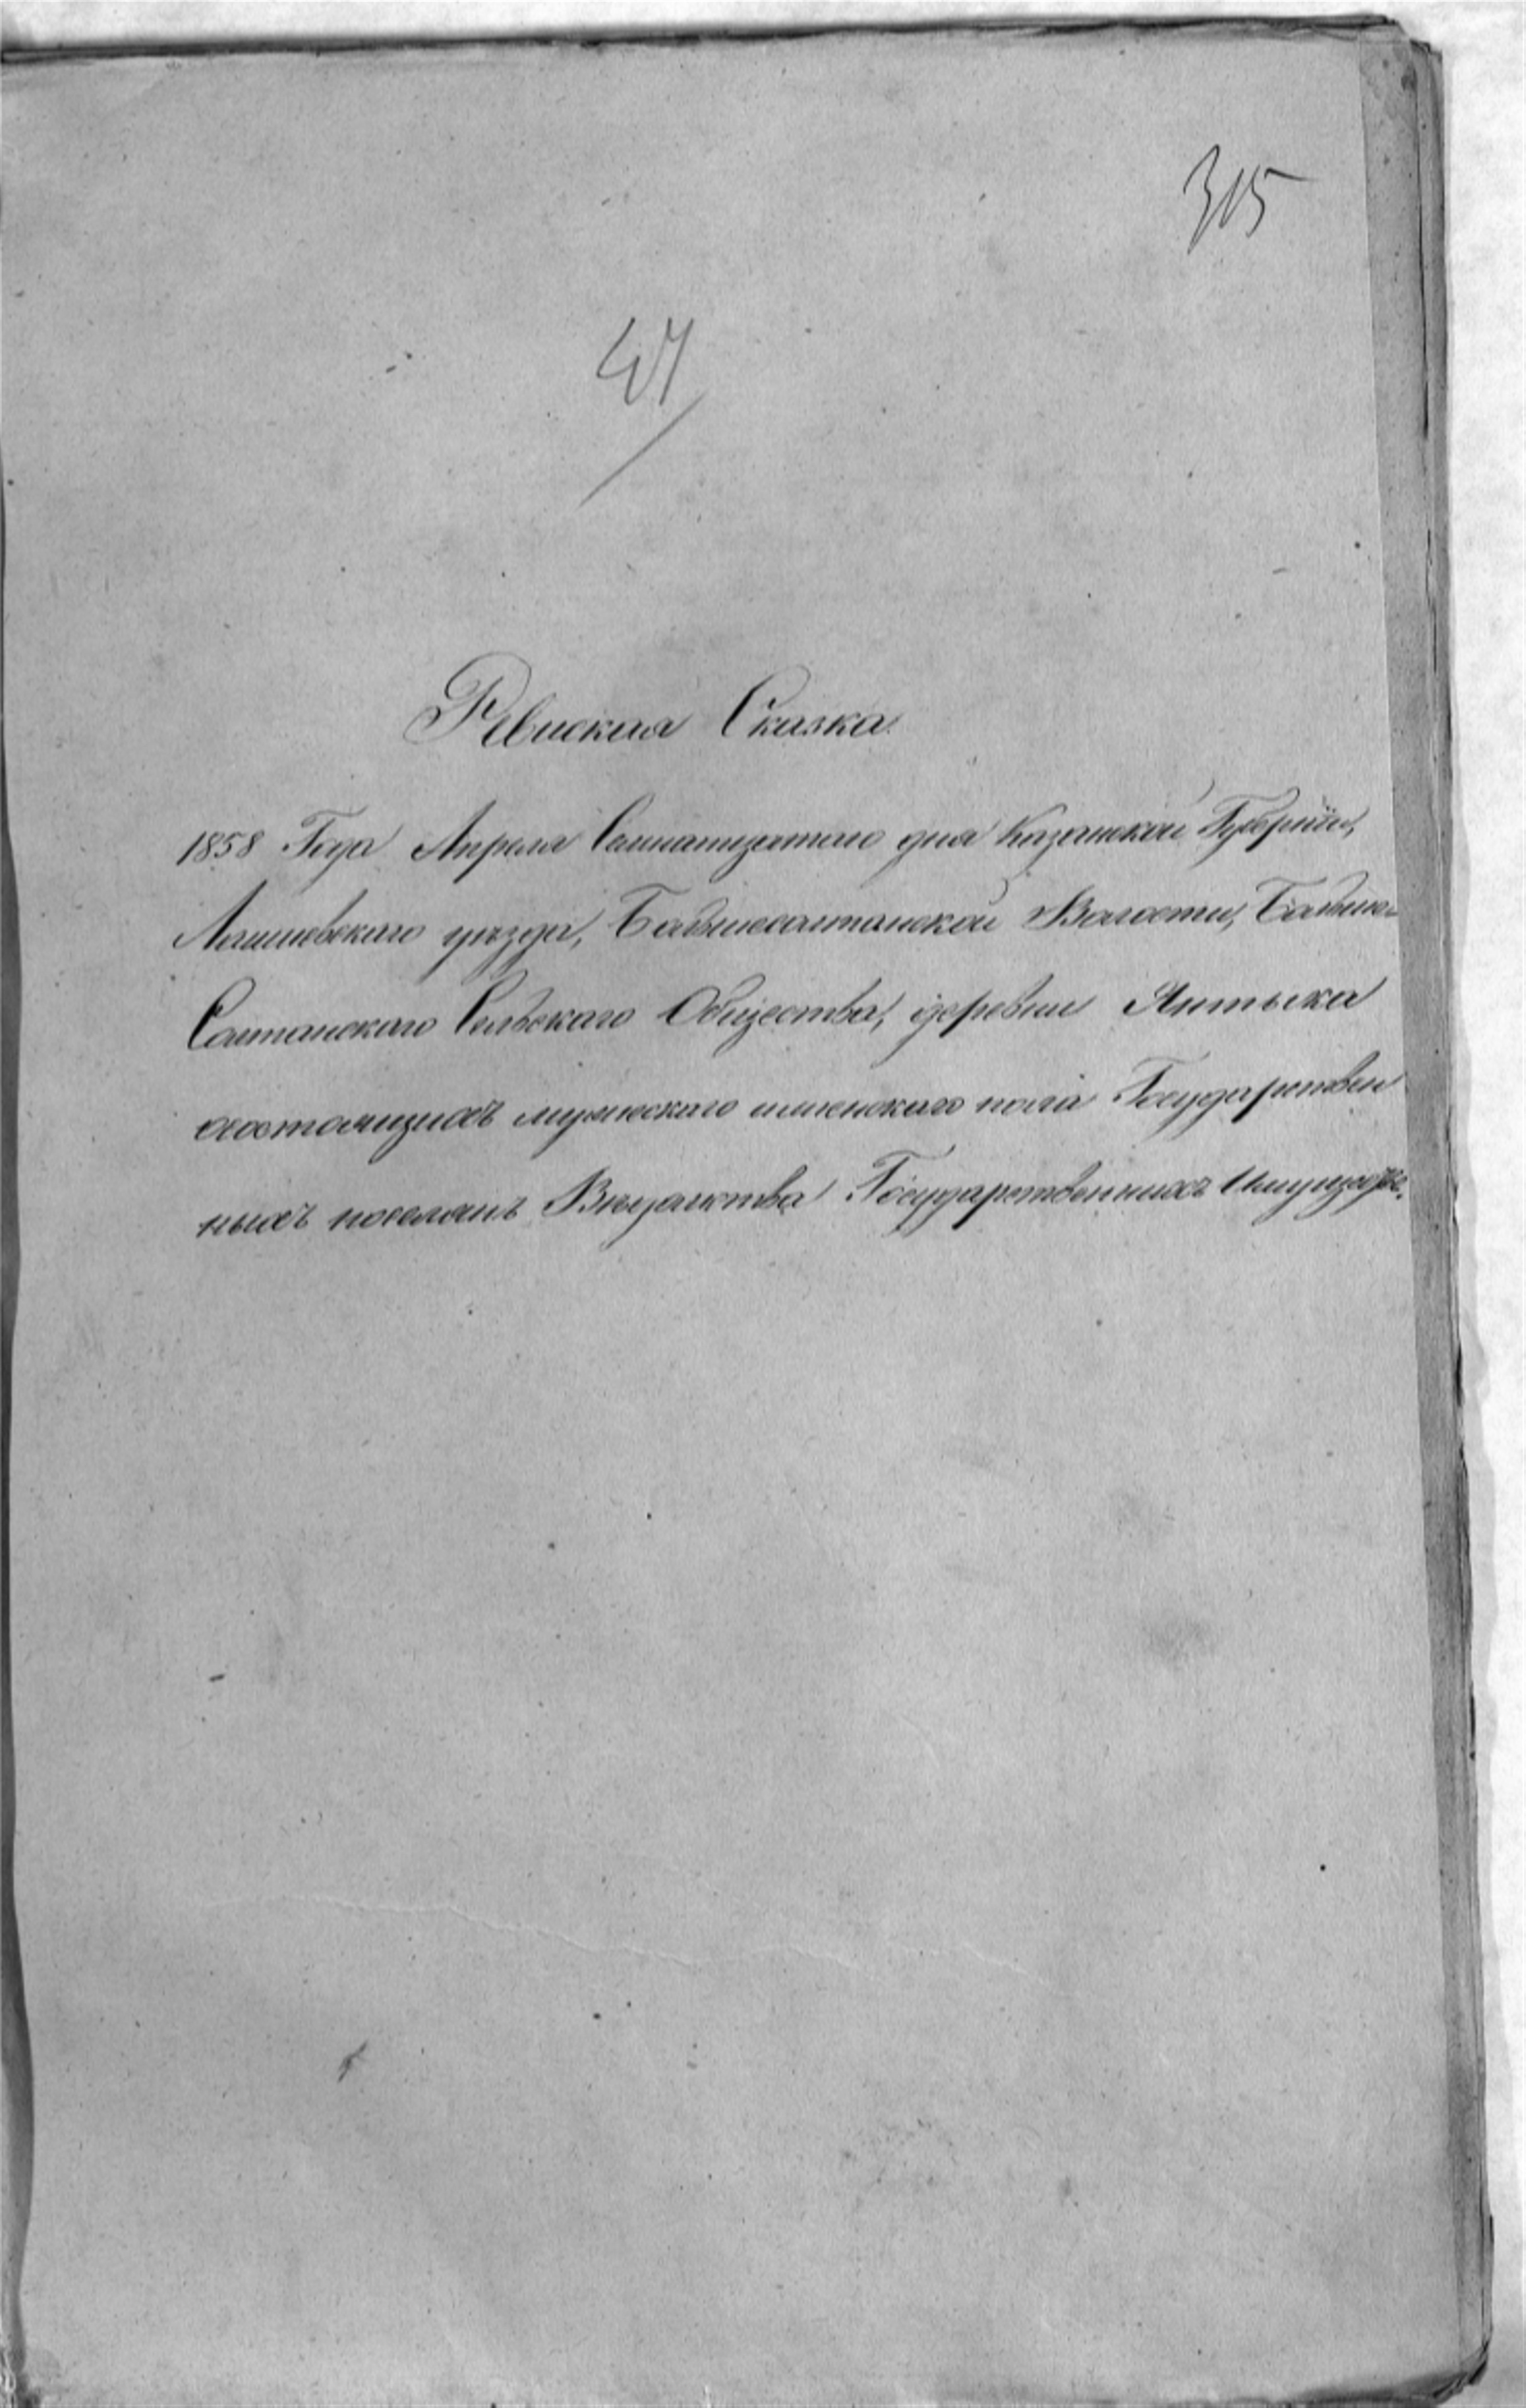 315
47
Ревиская Сказка.
1858 Года Апреля Семнатцатого дня Казанской Губернiи,
Лаишевского уѣзда, Большесалтанской Волости, Больше-
Салтанского Сельского Общества, деревни Янтыка
состоящихъ мужескаго иженскаго пола Государствен
ныхъ поселянъ Вѣдомства Государственныхъ Имуществъ.